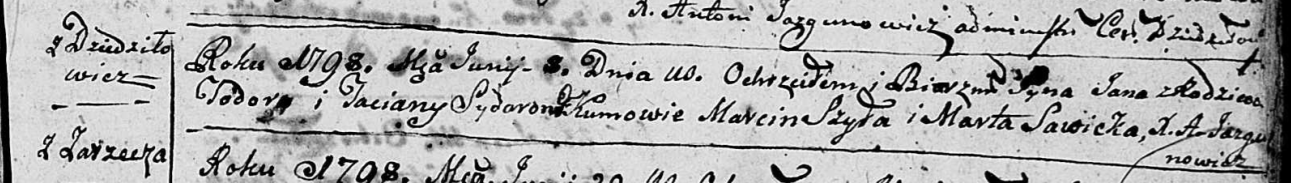 X. Antoni Jazgunowicz administr Cer. Dziedziłow
z Dziedziło
wicz
Roku 1798. Mca Junij 8. Dnia us. Ochrzciłem i Bierzm Syna Jana z Rodziców
Todora i Taciany Sydorow Kumowie Marcin Szyła i Marta Sawicka, X. A. Jazgu
nowicz
z Zarzecza
Roku 1798. Mca